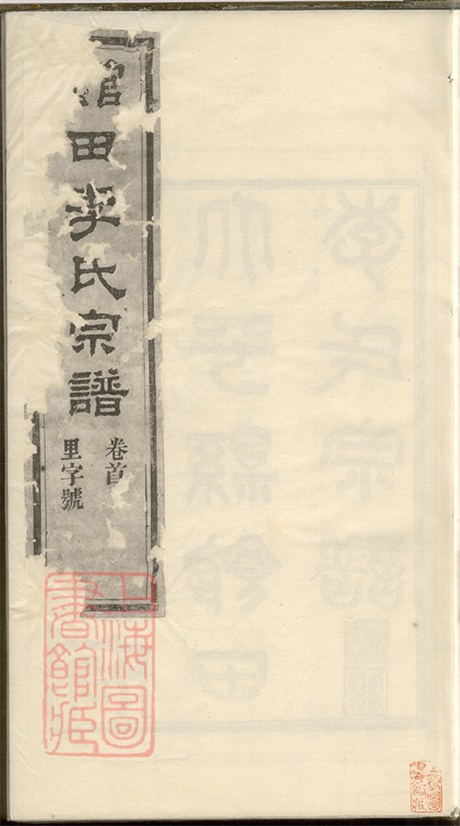 館田李氏宗譜
卷首
里字號
上海圖
書館藏